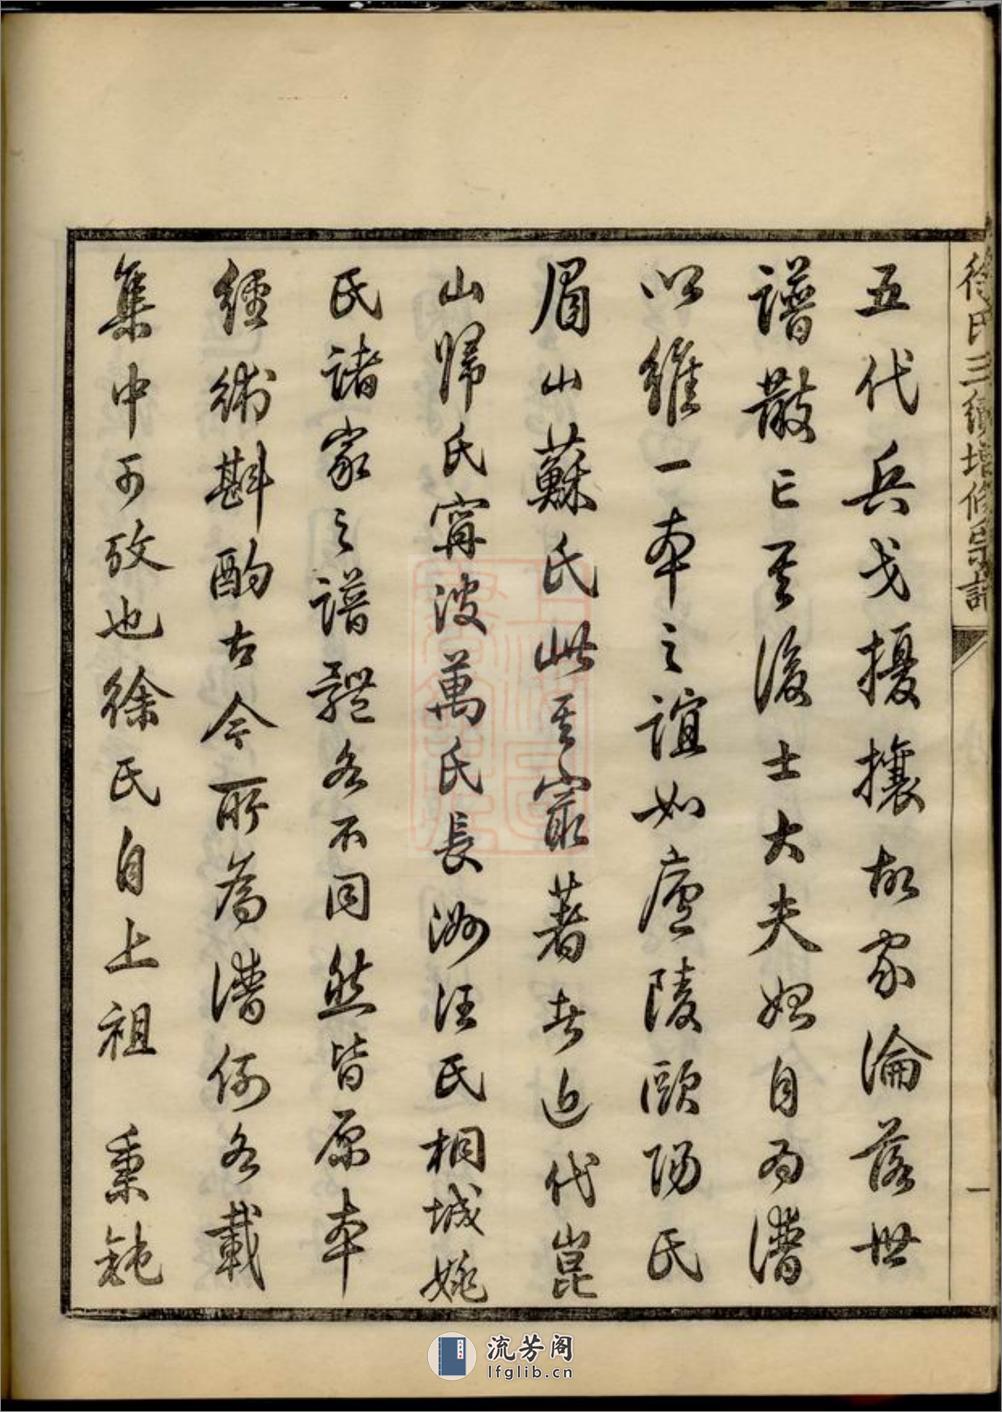 徐氏三續增修宗譜
一
五代兵戈擾攘故家淪落世
譜散亡其後士大夫始自為譜
以維一本之誼如廬陵歐陽氏
眉山蘇氏此其最著者近代崑
山歸氏寧波萬氏長洲汪氏桐城姚
氏諸家之譜體各不同然皆原本
經術斟酌古今所為譜例各載
集中可攷也徐氏自上祖 秉鈍
流芳阁
lfglib.cn